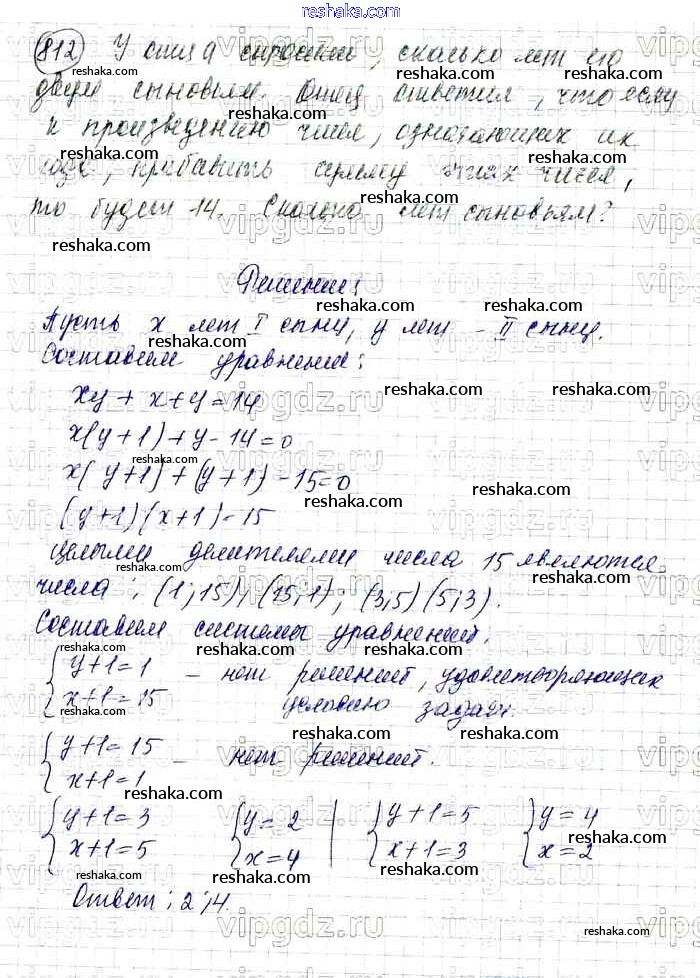 reshaka.com
812 У отца спросили, сколько лет его
двум сыновьям. Отец ответил, что если
к произведению чисел, означающих их
года, прибавить сумму этих чисел,
то будет 14. Сколько лет сыновьям?
Решение:
Пусть x лет I сыну, y лет - II сыну.
Составим уравнения:
xy + x + y = 14
x(y+1) + y - 14 = 0
x(y+1) + (y+1) - 15 = 0
(y+1)(x+1) = 15
Целыми делителями числа 15 являются
числа: (1; 15); (15; 1); (3; 5) (5; 3).
Составим системы уравнений.
{ y+1=1 - нет решений, удовлетворяющих
x+1=15 условию задачи.
{ y+1=15 - нет решений.
x+1=1
{ y+1=3 { y=2 | { y+1=5 { y=4
x+1=5 x=4 | x+1=3 x=2
Ответ: 2; 4.
vipgdz.ru
reshaka.com